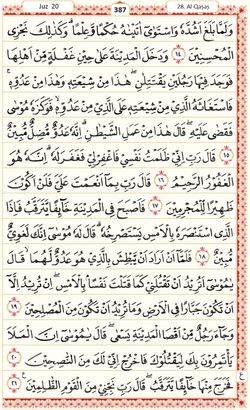 Juz 20
387
28. Al-Qaṣaṣ
وَلَمَّا بَلَغَ اَشُدَّهٗ وَاسْتَوٰٓى اٰتَيْنٰهُ حُكْمًا وَّعِلْمًاۗ وَكَذٰلِكَ نَجْزِى
الْمُحْسِنِيْنَ ١٤ وَدَخَلَ الْمَدِيْنَةَ عَلٰى حِيْنِ غَفْلَةٍ مِّنْ اَهْلِهَا
فَوَجَدَ فِيْهَا رَجُلَيْنِ يَقْتَتِلٰنِۖ هٰذَا مِنْ شِيْعَتِهٖ وَهٰذَا مِنْ عَدُوِّهٖۚ
فَاسْتَغَاثَهُ الَّذِيْ مِنْ شِيْعَتِهٖ عَلَى الَّذِيْ مِنْ عَدُوِّهٖ فَوَكَزَهٗ مُوْسٰى
فَقَضٰى عَلَيْهِۖ قَالَ هٰذَا مِنْ عَمَلِ الشَّيْطٰنِۗ اِنَّهٗ عَدُوٌّ مُّضِلٌّ مُّبِيْنٌ
١٥ قَالَ رَبِّ اِنِّيْ ظَلَمْتُ نَفْسِيْ فَاغْفِرْ لِيْ فَغَفَرَ لَهٗۗ اِنَّهٗ هُوَ
الْغَفُوْرُ الرَّحِيْمُ ١٦ قَالَ رَبِّ بِمَآ اَنْعَمْتَ عَلَيَّ فَلَنْ اَكُوْنَ
ظَهِيْرًا لِّلْمُجْرِمِيْنَ ١٧ فَاَصْبَحَ فِى الْمَدِيْنَةِ خَاۤىِٕفًا يَّتَرَقَّبُ فَاِذَا
الَّذِى اسْتَنْصَرَهٗ بِالْاَمْسِ يَسْتَصْرِخُهٗۗ قَالَ لَهٗ مُوْسٰٓى اِنَّكَ لَغَوِيٌّ
مُّبِيْنٌ ١٨ فَلَمَّآ اَنْ اَرَادَ اَنْ يَّبْطِشَ بِالَّذِيْ هُوَ عَدُوٌّ لَّهُمَاۙ قَالَ
يٰمُوْسٰٓى اَتُرِيْدُ اَنْ تَقْتُلَنِيْ كَمَا قَتَلْتَ نَفْسًاۢ بِالْاَمْسِۖ اِنْ تُرِيْدُ اِلَّآ
اَنْ تَكُوْنَ جَبَّارًا فِى الْاَرْضِ وَمَا تُرِيْدُ اَنْ تَكُوْنَ مِنَ الْمُصْلِحِيْنَ ١٩
وَجَاۤءَ رَجُلٌ مِّنْ اَقْصَا الْمَدِيْنَةِ يَسْعٰىۖ قَالَ يٰمُوْسٰٓى اِنَّ الْمَلَاَ
يَأْتَمِرُوْنَ بِكَ لِيَقْتُلُوْكَ فَاخْرُجْ اِنِّيْ لَكَ مِنَ النّٰصِحِيْنَ ٢٠
فَخَرَجَ مِنْهَا خَاۤىِٕفًا يَّتَرَقَّبُۖ قَالَ رَبِّ نَجِّنِيْ مِنَ الْقَوْمِ الظّٰلِمِيْنَ ٢١